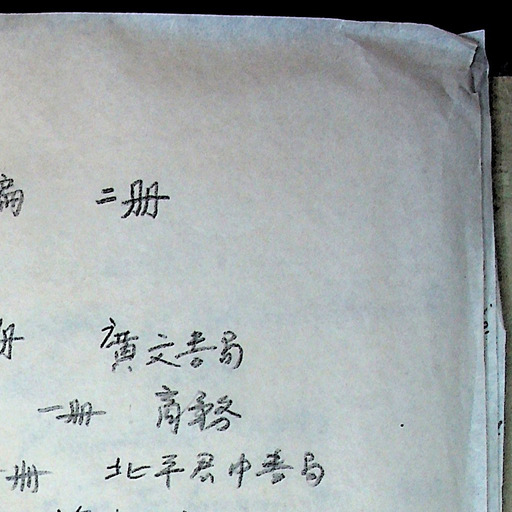 編 二册
册 廣文書局
一册 商務
一册 北平君中書局